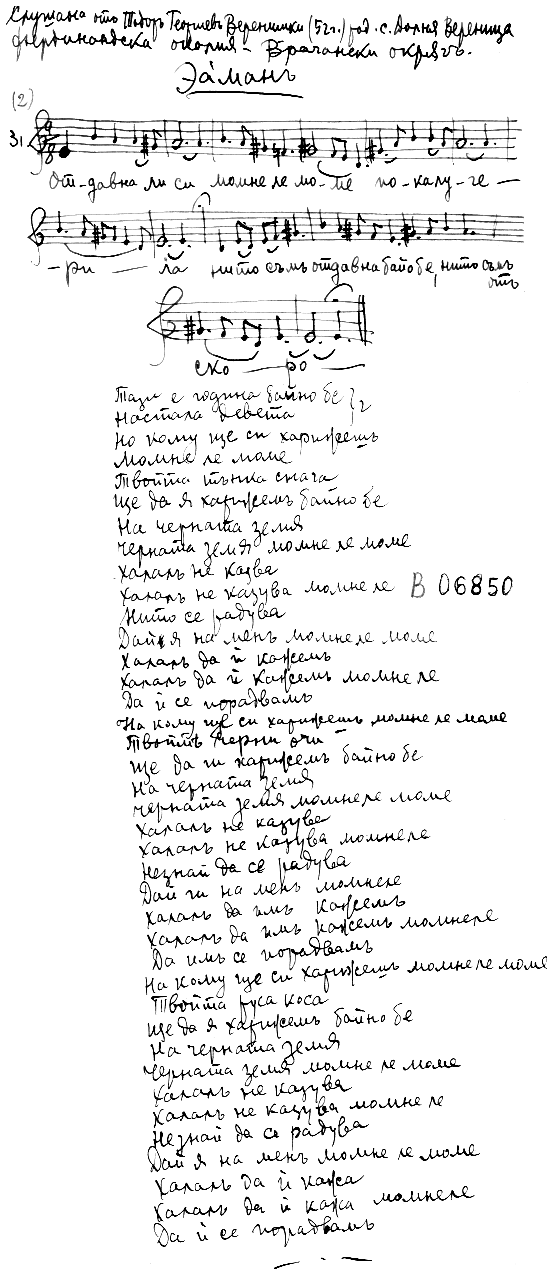 Слушана отъ Тодоръ Георгиевъ Веренишки (52 г.) род. с. Долня Вереница
фердинандска околия – Врачански окрѫгъ.
Заманъ
(2)
31
От-давна ли си момне ле мо-ме по-калу-ге —
-ри — ла нито съмъ отдавна байо бе, нито съмъ
отъ
ско — ро —
Тази е година байно бе } 2
Настала девета
На кому ще си харижешъ
момне ле моме
Твойта тънка снага
Ще да я харижемъ байно бе
На черната земя
Черната земя момне ле моме
Халалъ не казва
Халалъ не казува момне ле
B 06850
Нито се радува
Дай я на менъ момне ле моме
Халалъ да ѝ кажемъ
Халалъ да ѝ кажемъ момне ле
Да ѝ се порадвамъ
На кому ще си харижешъ момне ле моме
Твоитѣ черни очи
Ще да ги харижемъ байно бе
На черната земя
Черната земя момне ле моме
Халалъ не казува
Халалъ не казува момнеле
Незнай да се радува
Дай ги на менъ момнеле
Халалъ да имъ кажемъ
Халалъ да имъ кажемъ момнеле
Да имъ се порадвамъ
На кому ще си харижешъ момне ле моме
Твойта руса коса
Ще да я харижемъ байно бе
На черната земя
Черната земя момне ле моме
Халалъ не казува
Халалъ не казува момне ле
Незнай да се радува
Дай я на менъ момне ле моме
Халалъ да ѝ кажа
Халалъ да ѝ кажа момнеле
Да ѝ се порадвамъ